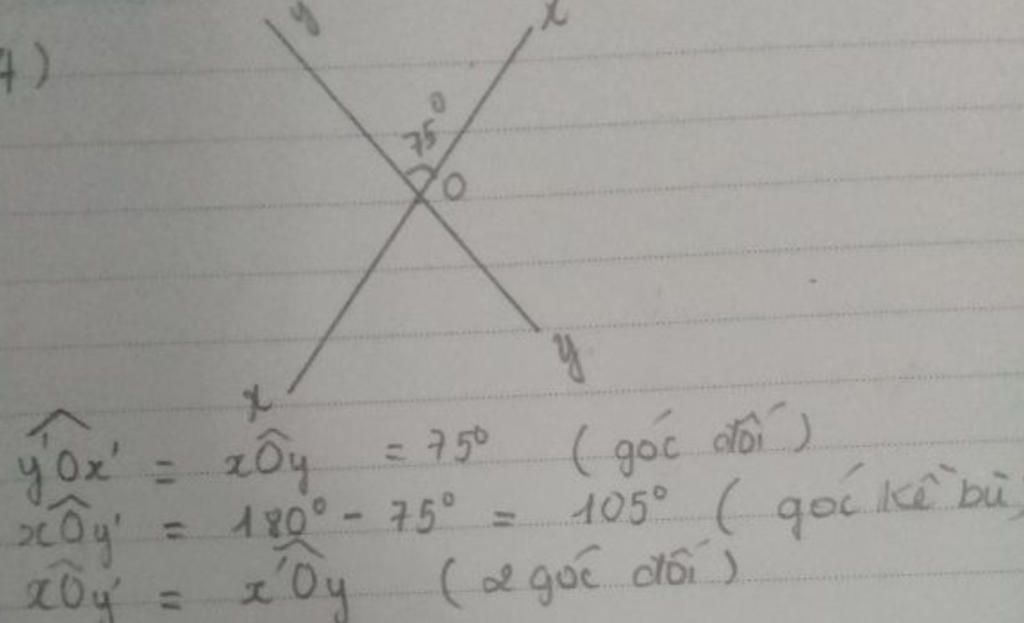 7)
y
x
75⁰
O
x
y
y'Ox' = xÔy = 75⁰ (góc đối)
xÔy' = 180⁰ - 75⁰ = 105⁰ (góc kề bù)
xÔy' = x'Ôy (2 góc đối)